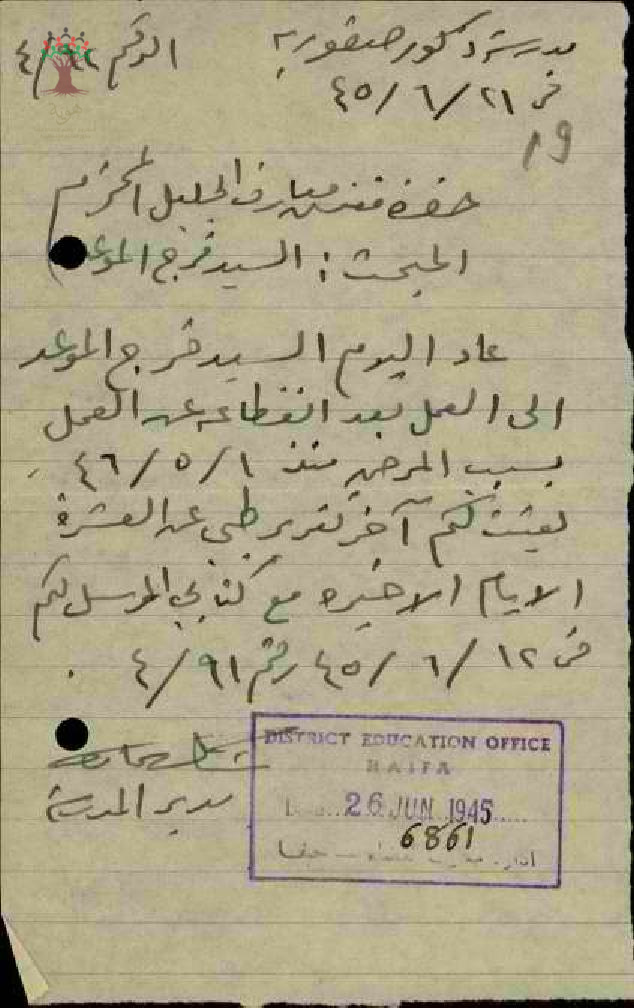 مدرسة ذكور صفورية
الرقم ٤/
في ٢١/٦/٤٥
19
حضرة مفتش معارف الجليل المحترم
المبحث : السيد فرج الموعد
عاد اليوم السيد فرج الموعد
الى العمل بعد انقطاعه عن العمل
بسبب المرض منذ ١/٥/٤٦
بعثت لكم آخر تقرير طبي عن العشرة
الايام الاخيرة مع كتابي المرسل لكم
في ١٢/٦/٤٥ رقم ٤/٩١ .
مدير المدرسة
DISTRICT EDUCATION OFFICE
HAIFA
26 JUN 1945
6861
حيفا